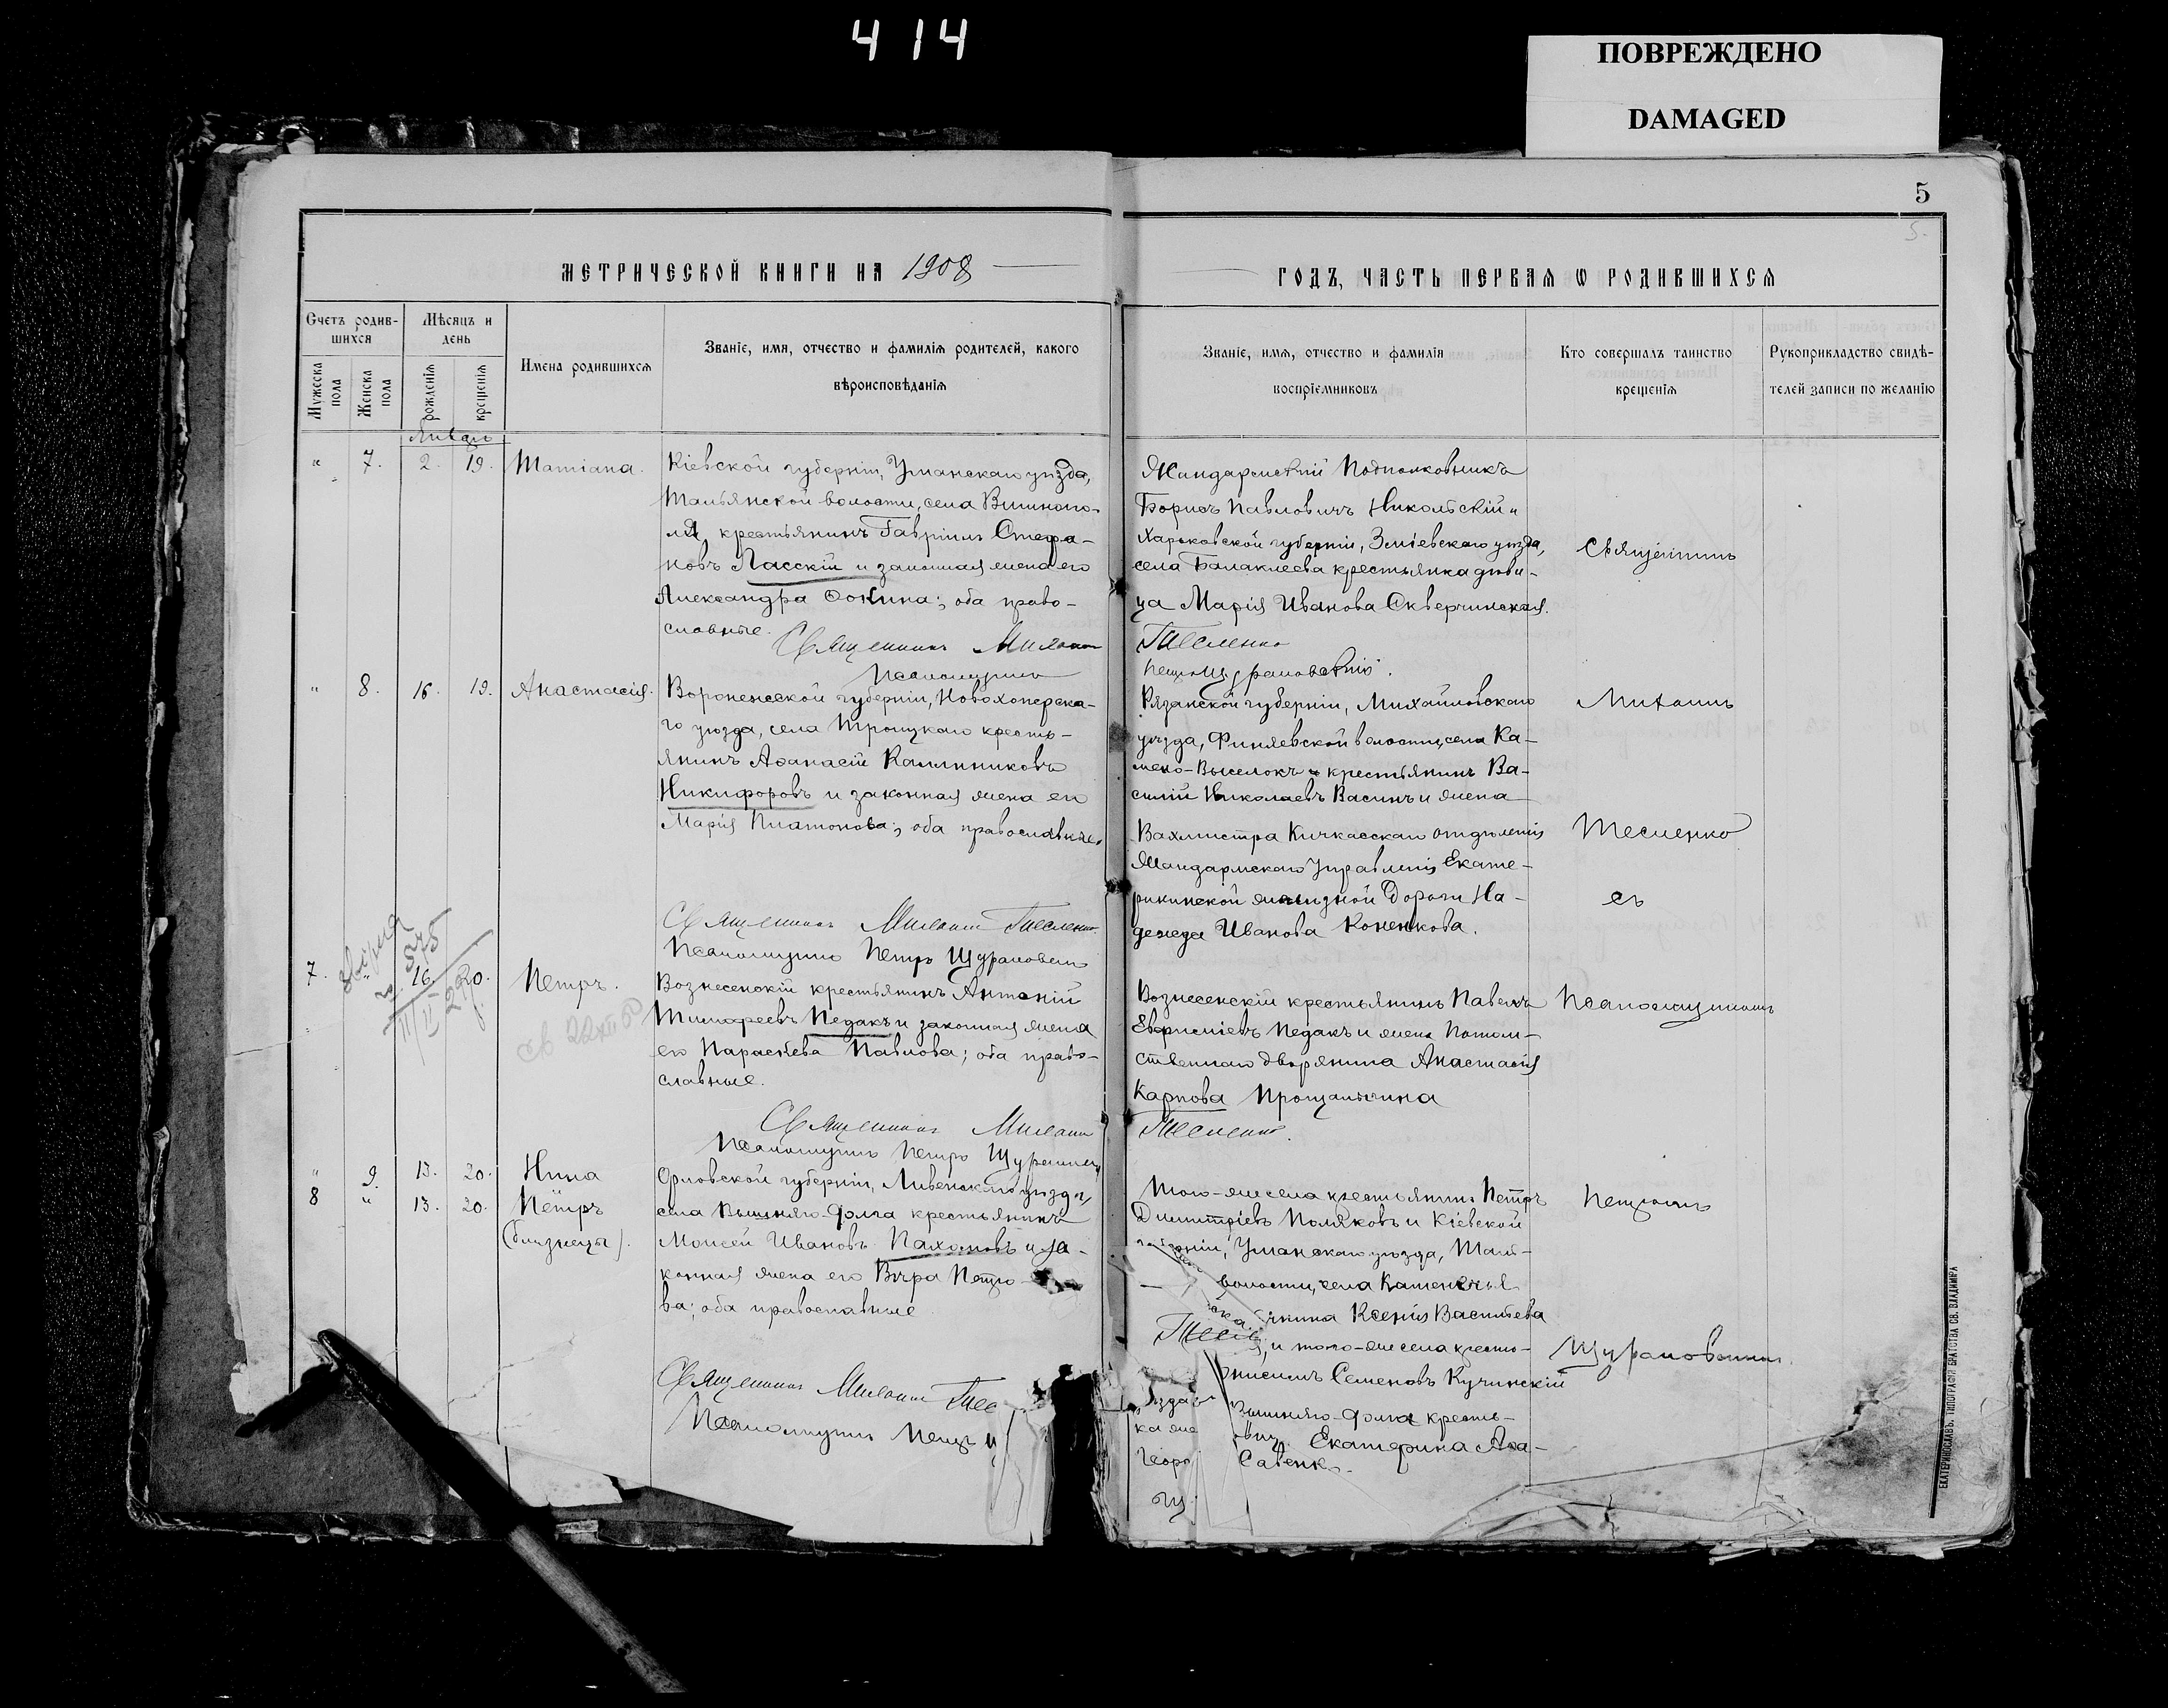 414
ПОВРЕЖДЕНО
DAMAGED
5
5.
МЕТРИЧЕСКОЙ КНИГИ НА 1908
ГОДЪ, ЧАСТЬ ПЕРВАЯ Ѡ РОДИВШИХСЯ
Счетъ родив-
шихся
Мѣсяцъ и
день
Мужеска пола
Женска пола
рожденія
крещенія
Имена родившихся
Званіе, имя, отчество и фамилія родителей, какого
вѣроисповѣданія
Званіе, имя, отчество и фамилія
воспріемниковъ
Кто совершалъ таинство
крещенія
Рукоприкладство свидѣ-
телей записи по желанію
" 7. 2. 19. Татіана.
Кіевской губерніи, Уманскаго уѣзда,
Тальянской волости, села Вишнопо-
ля крестьянинъ Гавріилъ Стефа-
новъ Ласскій и законная жена его
Александра Фокина; оба право-
славные.
Священникъ Михаил
Псаломщикъ
Жандармскій Подполковникъ
Борисъ Павловичъ Никольскій и
Харьковской губерніи, Зміевскаго уѣзда,
села Балаклеева крестьянка дѣви-
ца Марія Иванова Скверчинская.
Тесленко
Петръ Щурановскій.
Священникъ
" 8. 16. 19. Анастасія.
Воронежской губерніи, Новохоперска-
го уѣзда, села Троицкаго кресть-
янинъ Аѳанасій Калинниковъ
Никифоровъ и законная жена его
Марія Платонова; оба православные.
Священникъ Михаил Тесленко
Псаломщикъ Петръ Щурановскій
Рязанской губерніи, Михайловскаго
уѣзда, Финяевской волости, села Ка-
мено-Выселокъ крестьянинъ Ва-
силій Николаевъ Васинъ и жена
Вахмистра Кичкасскаго отдѣленія
Жандармскаго Управленія Екате-
рининской желѣзной Дороги На-
дежда Иванова Коненкова.
Михаилъ
Тесленко
съ
7. " 16. 20. Петръ.
Вознесенскій крестьянинъ Антоній
Тимофеевъ Педакъ и законная жена
его Параскева Павлова; оба право-
славные.
Священникъ Михаил
Псаломщикъ Петръ
Вознесенскій крестьянинъ Павелъ
Евфиміевъ Педакъ и жена Потом-
ственнаго дворянина Анастасія
Карпова
Тесленко.
Псаломщикомъ
" 9. 13. 20. Нина
8 " 13. 20. Петръ
(близнецы).
Орловской губерніи, Ливенскаго уѣзда,
села Вышняго-Долга крестьянинъ
Моисей Ивановъ Пахомовъ и за-
конная жена его Вѣра Петро-
ва; оба православные
Священникъ Михаил Тес
Псаломщикъ Петръ Щ
Того-же села крестьянинъ Петръ
Димитріевъ Поляковъ и Кіевской
губерніи, Уманскаго уѣзда, Таль-
волости, села
Ксенія Васильева
Тесле
, и того-же села кресть-
Семеновъ Кучинскій
Вышняго-Долга кресть-
Екатерина Аѳа-
Савенко
Петромъ
Щурановскимъ.
ЕКАТЕРИНОСЛАВЪ. ТИПОГРАФІЯ БРАТСТВА СВ. ВЛАДИМІРА